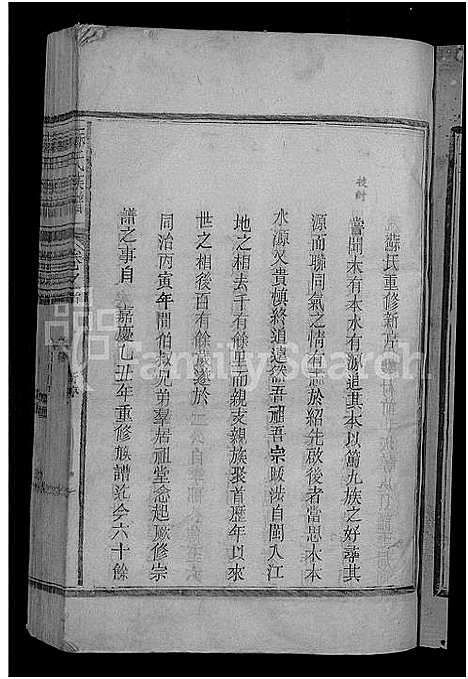 蘇氏重修新
嘗聞木有本水有源追其本以篤九族之好尋其
源而聯同氣之情有志於紹先啟後者當思木本
水源又貴慎終追遠然吾祖吾宗跋涉自閩入江
地之相去千有餘里而親支親族聚首歷年以來
世之相後百有餘歲遂於
同治丙寅年間伯叔兄弟羣居祖堂念起厥修宗
譜之事自嘉慶乙丑年重修族譜迄今六十餘
FamilySearch